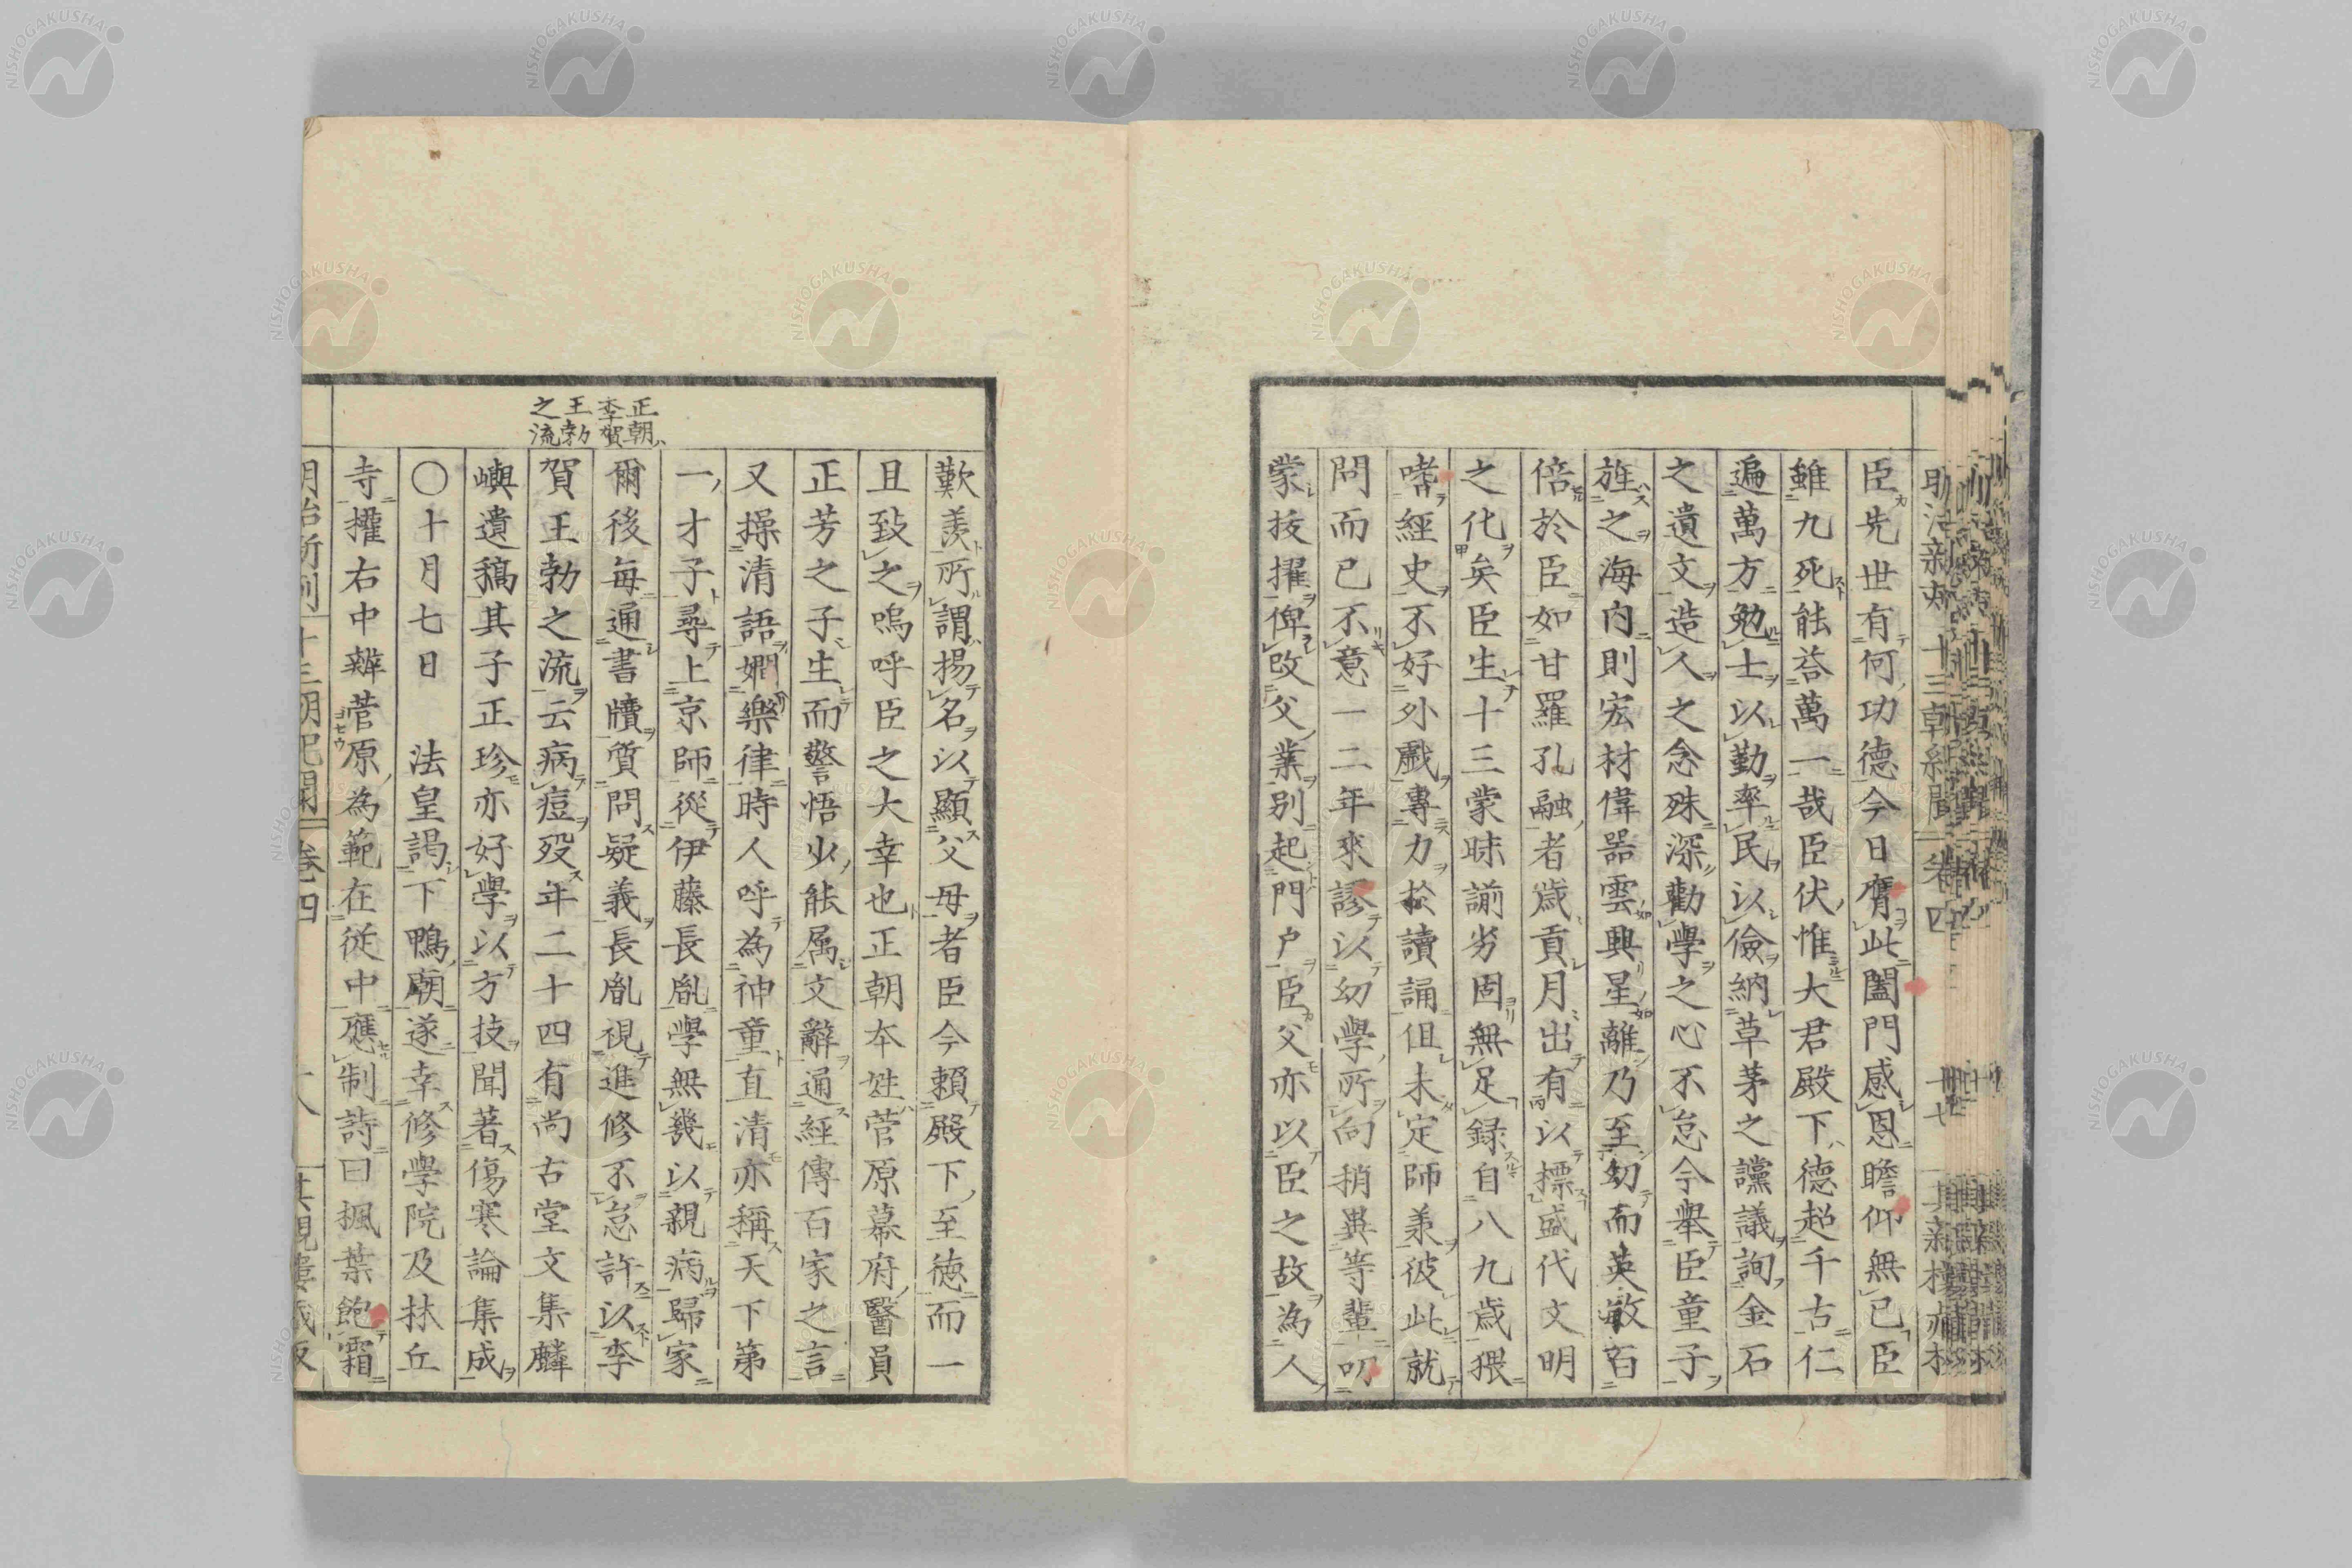 臣先世有何功德今日膺此闔門感恩瞻仰無已臣
雖九死能荅萬一哉臣伏惟大君殿下德超千古仁
遍萬方勉士以勤率民以儉納草茅之讜議詢金石
之遺文造人之念殊深勸學之心不怠今舉臣童子
旌之海內則宏材偉器雲興星離乃至幼而英敏百
倍於臣如甘羅孔融者歳貢月出有以標盛代文明
之化矣臣生十三蒙昧謭劣固無足録自八九歳猥
嗜經史不好外戲專力於讀誦但未定師兼彼此就
問而已不意一二年來謬以幼學所向稍異等輩叨
蒙拔擢俾改父業別起門戸臣父亦以臣之故為人
歎羨所謂揚名以顯父母者臣今賴殿下至徳而一
且致之嗚呼臣之大幸也正朝本姓菅原幕府醫員
正芳之子生而警悟少能属文辭通經傳百家之言
又操清語嫺樂律時人呼為神童直清亦稱天下第
一才子尋上京師從伊藤長胤學無幾以親病歸家
爾後每通書牘質問疑義長胤視進修不怠許以李
賀王勃之流云病痘歿年二十四有尚古堂文集麟
嶼遺稿其子正珍亦好學以方技聞著傷寒論集成
〇十月七日　法皇謁下鴨廟遂幸修學院及林丘
寺權右中辨菅原為範在従中應制詩曰楓葉飽霜
正朝李賀王勃之流
明治新刻十三朝紀聞 卷四